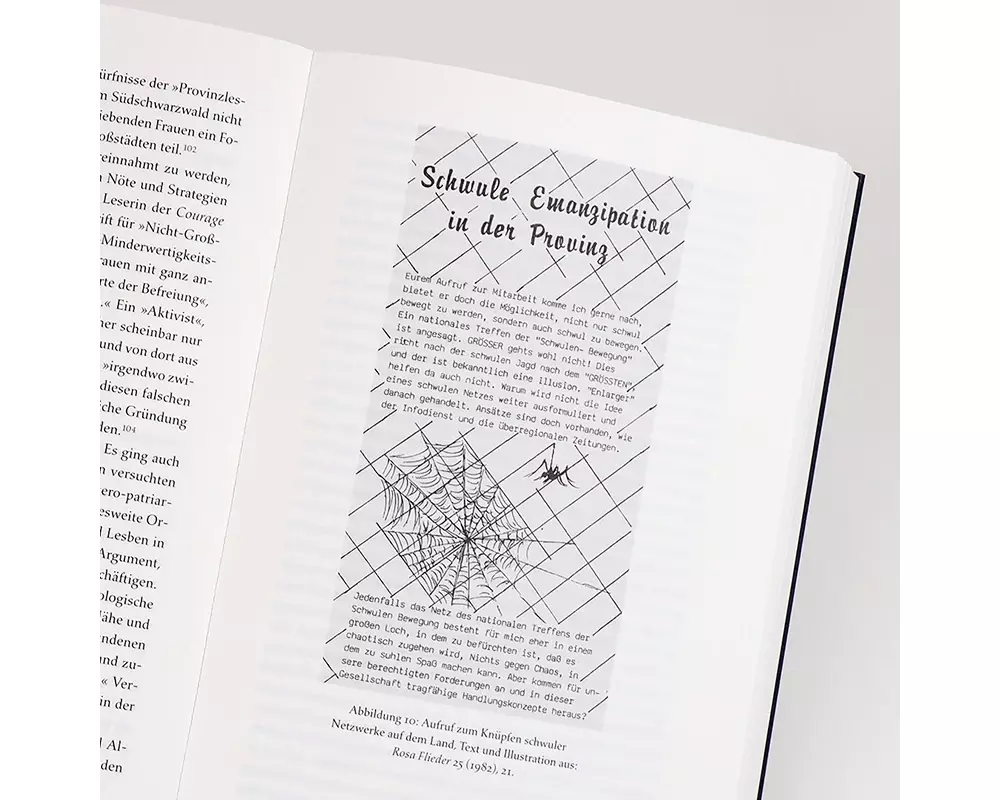 ürfnisse der »Provinzles-
m Südschwarzwald nicht
iebenden Frauen ein Fo-
oßstädten teil.¹⁰²
reinnahmt zu werden,
n Nöte und Strategien
Leserin der Courage
rift für »Nicht-Groß-
Minderwertigkeits-
rauen mit ganz an-
rte der Befreiung«,
.« Ein »Aktivist«,
ner scheinbar nur
und von dort aus
»irgendwo zwi-
diesen falschen
liche Gründung
den.¹⁰⁴
Es ging auch
n versuchten
ero-patriar-
esweite Or-
l Lesben in
Argument,
chäftigen.
ologische
Nähe und
ndenen
nd zu-
« Ver-
in der
d Al-
den
Schwule Emanzipation
in der Provinz
Eurem Aufruf zur Mitarbeit komme ich gerne nach,
bietet er doch die Möglichkeit, nicht nur schwul
bewegt zu werden, sondern auch schwul zu bewegen.
Ein nationales Treffen der "Schwulen- Bewegung"
ist angesagt. GRÖSSER gehts wohl nicht! Dies
richt nach der schwulen Jagd nach dem "GRÖSSTEN",
und der ist bekanntlich eine Illusion. "Enlarger"
helfen da auch nicht. Warum wird nicht die Idee
eines schwulen Netzes weiter ausformuliert und
danach gehandelt. Ansätze sind doch vorhanden, wie
der Infodienst und die überregionalen Zeitungen.
Jedenfalls das Netz des nationalen Treffens der
Schwulen Bewegung besteht für mich eher in einem
großen Loch, in dem zu befürchten ist, daß es
chaotisch zugehen wird, Nichts gegen Chaos, in
dem zu suhlen Spaß machen kann. Aber kommen für un-
sere berechtigten Forderungen an und in dieser
Gesellschaft tragfähige Handlungskonzepte heraus?
Abbildung 10: Aufruf zum Knüpfen schwuler
Netzwerke auf dem Land. Text und Illustration aus:
Rosa Flieder 25 (1982), 21.